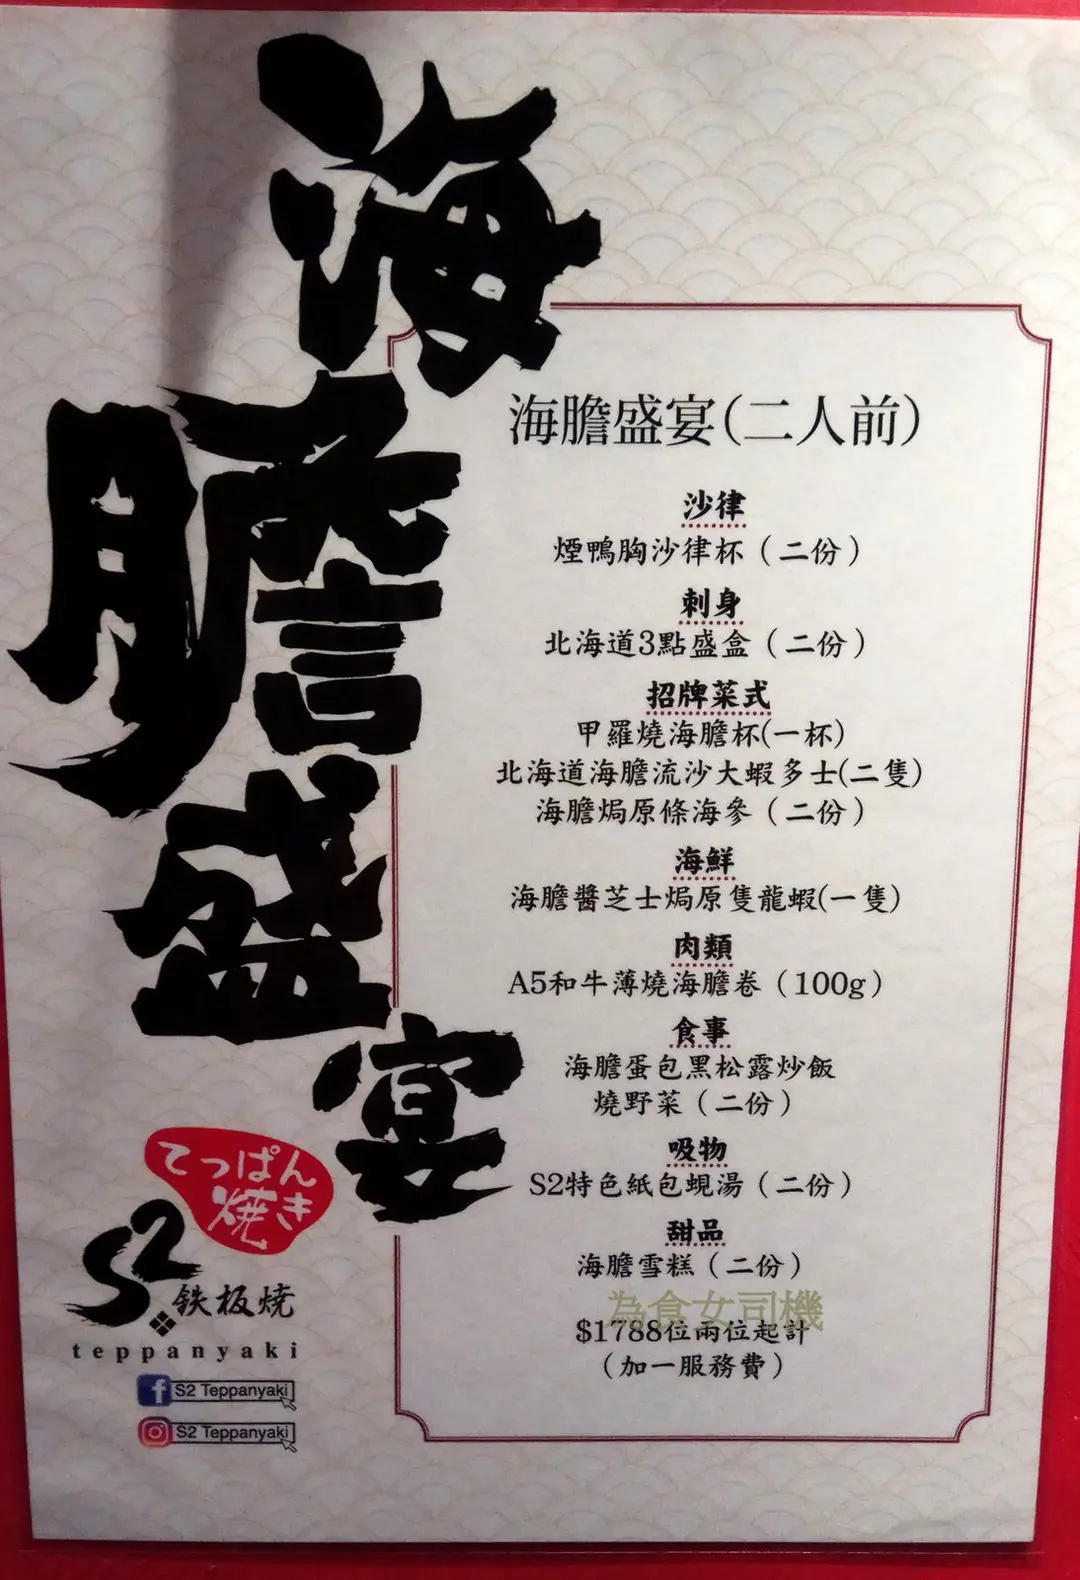 海膽盛宴
海膽盛宴(二人前)
沙律
煙鴨胸沙律杯（二份）
刺身
北海道3點盛盒（二份）
招牌菜式
甲羅燒海膽杯(一杯)
北海道海膽流沙大蝦多士(二隻)
海膽焗原條海參（二份）
海鮮
海膽醬芝士焗原隻龍蝦(一隻)
肉類
A5和牛薄燒海膽卷（100g）
食事
海膽蛋包黑松露炒飯
燒野菜（二份）
吸物
S2特色紙包蜆湯（二份）
甜品
海膽雪糕（二份）
為食女司機
$1788位兩位起計
（加一服務費）
てっぱん
焼き
S2
鉄板焼
teppanyaki
S2 Teppanyaki
S2 Teppanyaki